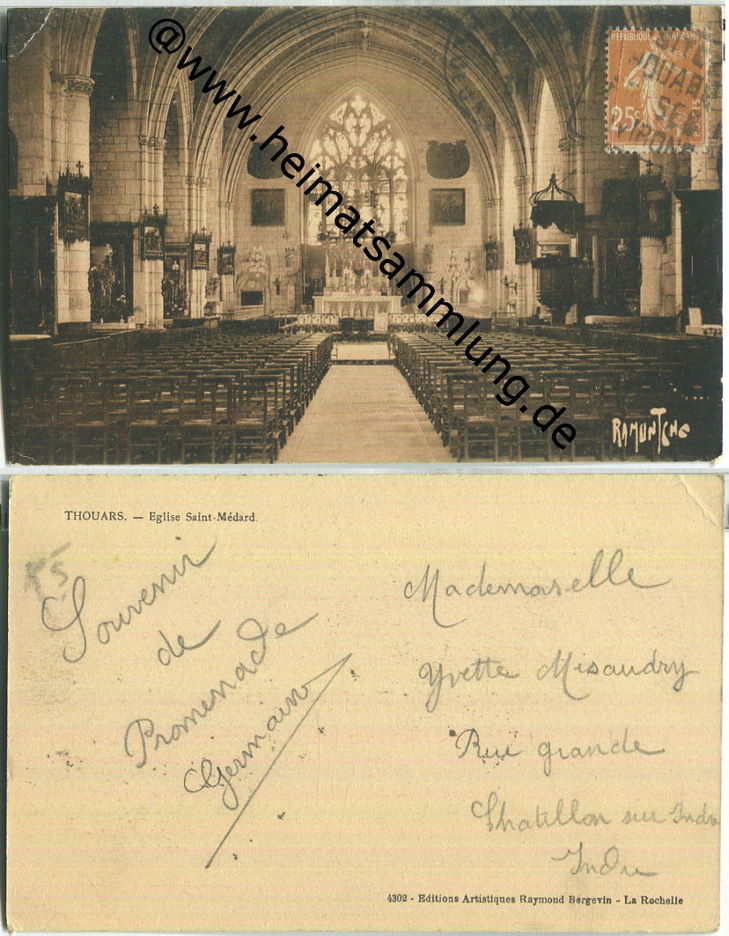 @www.heimatsammlung.de
REPUBLIQUE FRANCAISE
25c
RAMUNTCHO
THOUARS. — Eglise Saint-Médard.
Souvenir
de
Promenade
Germain
Mademoiselle
Yvette Misaudry
Rue grande
Chatillon sur Indre
Indre
4302 - Editions Artistiques Raymond Bergevin - La Rochelle